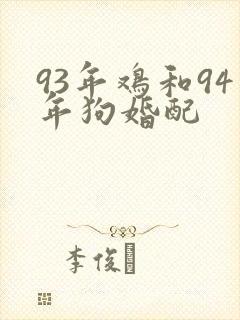 93年鸡和94
年狗婚配
李俊